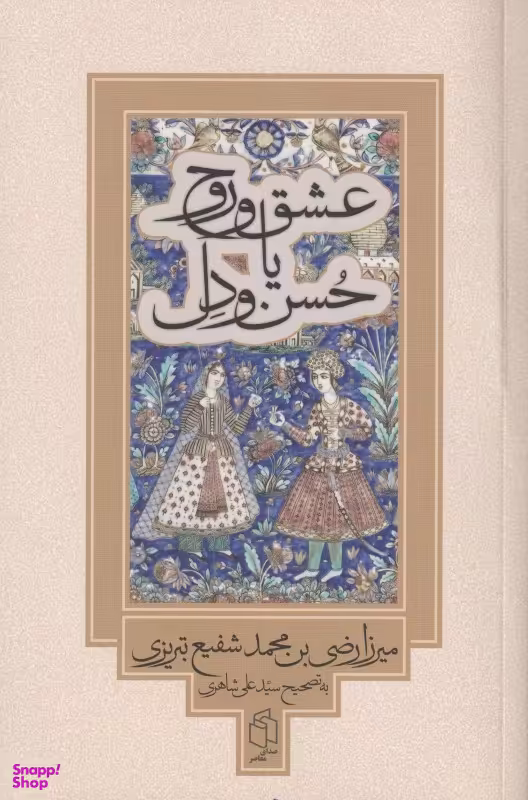 عشق و روح
یا
حُسن و دل
میرزا رضی بن محمد شفیع تبریزی
به تصحیح سیّد علی شاهری
صدای
معاصر
Snapp!
Shop